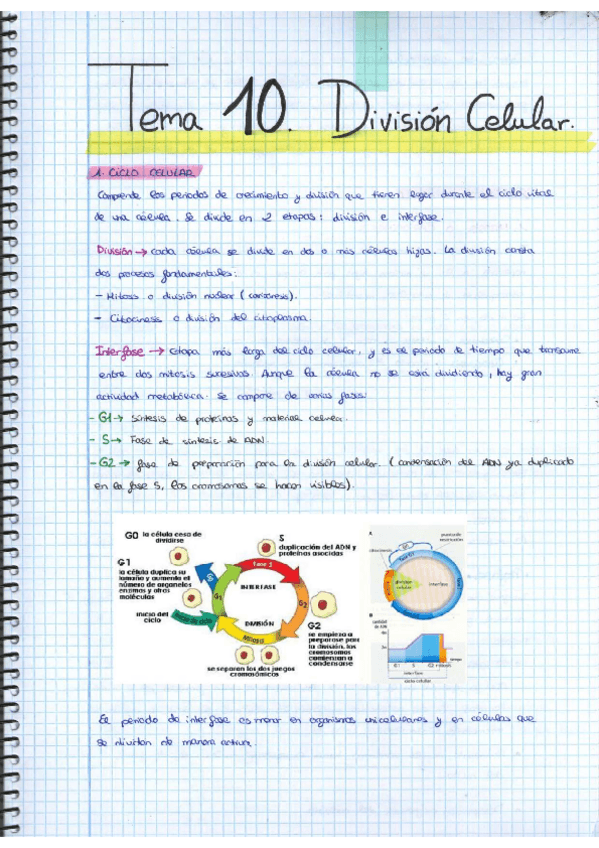 Tema 10. División Celular.
1. CICLO CELULAR
Comprende los periodos de crecimiento y división que tienen lugar durante el ciclo vital
de una célula. Se divide en 2 etapas: división e interfase.
División → cada célula se divide en dos o más células hijas. La división consta
dos procesos fundamentales:
- Mitosis o división nuclear (cariocinesis).
- Citocinesis o división del citoplasma.
Interfase → Etapa más larga del ciclo celular, y es el periodo de tiempo que transcurre
entre dos mitosis sucesivas. Aunque la célula no se está dividiendo, hay gran
actividad metabólica. Se compone de varias fases:
- G1 → síntesis de proteínas y material celular.
- S → Fase de síntesis de ADN.
- G2 → fase de preparación para la división celular. (condensación del ADN ya duplicado
en la fase S, los cromosomas se hacen visibles).
G0 la célula cesa de
dividirse
S
duplicación del ADN y
proteínas asociadas
G1
la célula duplica su
tamaño y aumenta el
número de organelos
enzimas y otras
moléculas
inicio del
ciclo
Fase S
INTERFASE
G0
G1
G2
INICIO DE CICLO
DIVISIÓN
MITOSIS
G2
se empieza a
prepararse para
la división, los
cromosomas
comienzan a
condensarse
se separan los dos juegos
cromosómicos
A
punto de
restricción
G0
división
celular
interfase
B
cantidad
de ADN
tiempo
G1 S G2
interfase
ciclo celular
El periodo de interfase es menor en organismos unicelulares y en células que
se dividen de manera activa.